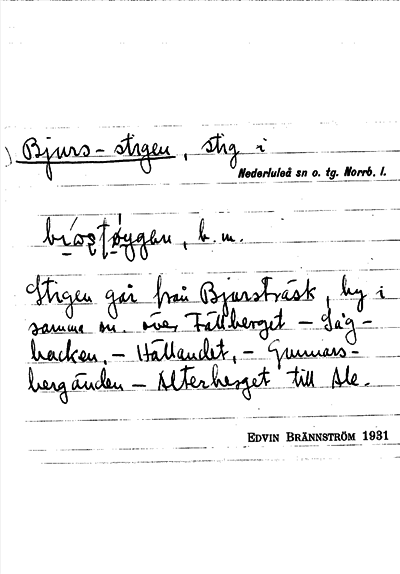 Bjurs-stigen, stig i
Nederluleå sn o. tg. Norrb. l.
b. m.
Stigen går från Bjursträsk, by i
samma sn. över Fällberget – Såg-
backen, – Hällandet, – Gunnars-
bergänden – Alterberget till Ale.
EDVIN BRÄNNSTRÖM 1931